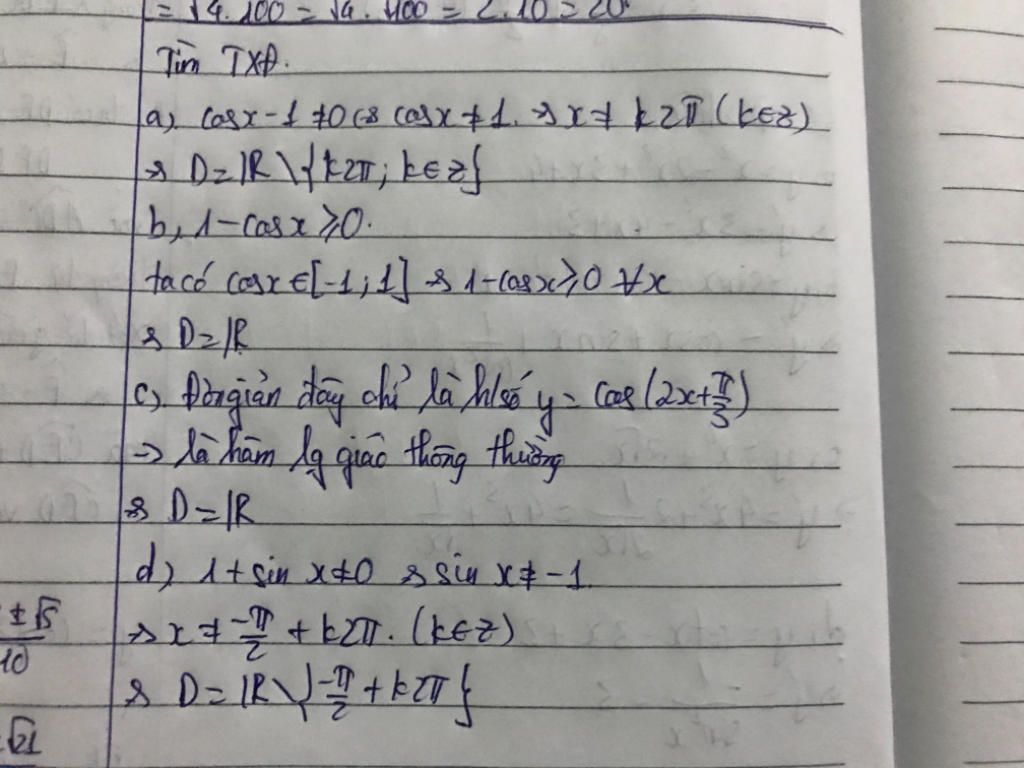 = √4.100 = √4 . √100 = 2.10 = 20.
Tìm TXĐ.
a, cosx-1 ≠ 0 ⇔ cosx ≠ 1. → x ≠ k2π (k∈z)
→ D = |R \ {k2π; k∈z}
b, 1-cosx ≥ 0.
ta có cosx ∈ [-1; 1] → 1-cosx ≥ 0 ∀x
→ D = |R
c, Đơn giản đây chỉ là h/số y = cos(2x+π/3)
→ là hàm lg giác thông thường
→ D = |R
d) 1+sin x ≠ 0 → sin x ≠ -1.
± √5
→ x ≠ -π/2 + k2π. (k∈z)
10
→ D = |R \ {-π/2 + k2π}
√21